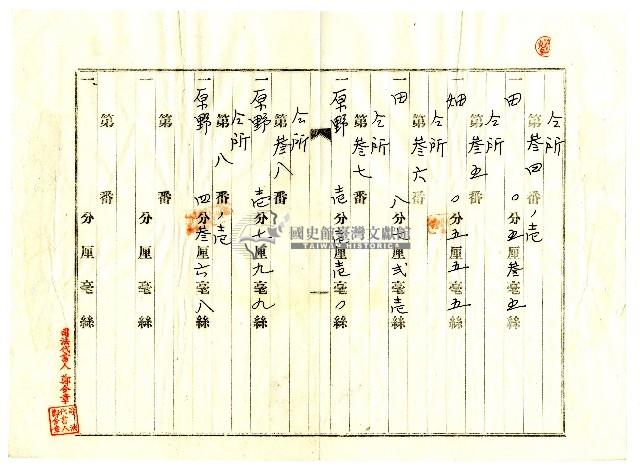 仝所
第叄四番ノ壱
一 田 〇分五厘叄毫五絲
仝所
第叄五番
一 畑 〇分五厘五毫五絲
仝所
第叄六番
一 田 八分七厘弍毫壱絲
仝所
第叄七番
一 原野 壱分 厘壱毫〇絲
仝所
第叄八番
一 原野 壱分七厘九毫九絲
仝所
第 八番ノ壱
一 原野 四分叄厘六毫八絲
第 番
一 分厘毫絲
第 番
一 分厘毫絲
司法代書人 鄭金章
國史館臺灣文獻館
TAIWAN HISTORICA